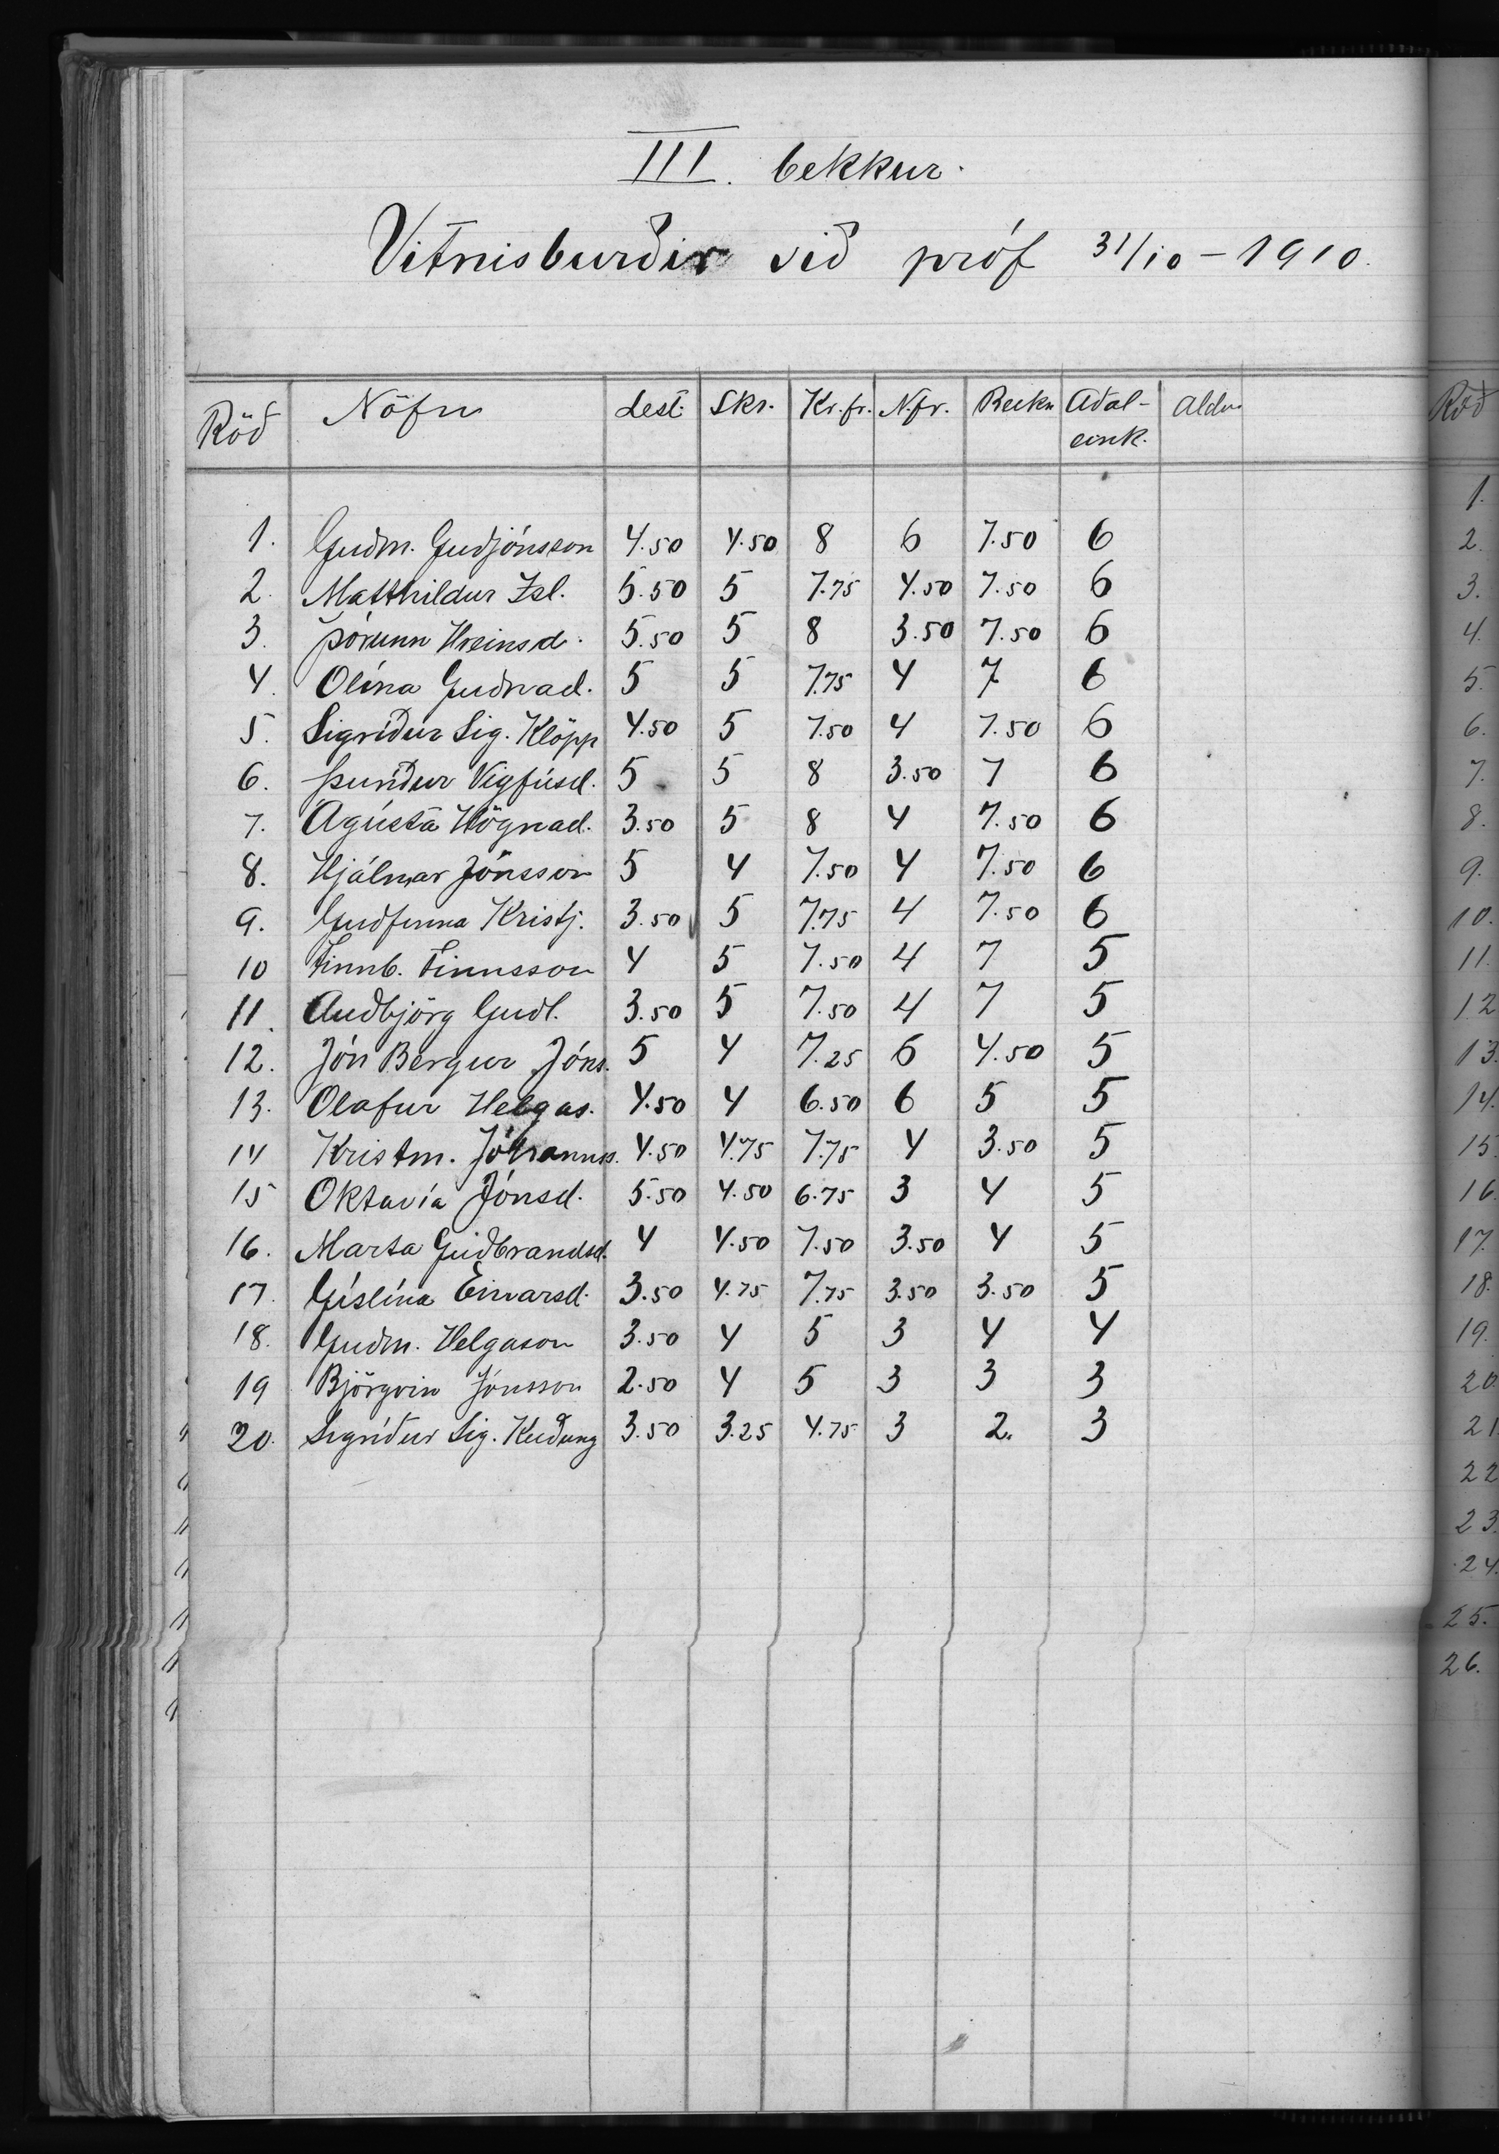 III. bekkur.
Vitnisburðir við próf 31/10 - 1910.
Röð Nöfn Lest. Skr. Kr.fr. N.fr. Reikn Aðal- Aldur
eink.
1. Guðm. Guðjónsson 4.50 4.50 8 6 7.50 6
2. Matthildur Ísl. 5.50 5 7.75 4.50 7.50 6
3. Þórunn Hreinsd. 5.50 5 8 3.50 7.50 6
4. Olína Guðnad. 5 5 7.75 4 7 6
5. Sigríður Sig. Klöpp 4.50 5 7.50 4 7.50 6
6. Þuríður Vigfúsd. 5 5 8 3.50 7 6
7. Agústa Högnad. 3.50 5 8 4 7.50 6
8. Hjálmar Jónsson 5 4 7.50 4 7.50 6
9. Guðfinna Kristj. 3.50 5 7.75 4 7.50 6
10 Finnb. Finnsson 4 5 7.50 4 7 5
11. Auðbjörg Guðl. 3.50 5 7.50 4 7 5
12. Jón Bergur Jóns. 5 4 7.25 6 4.50 5
13. Olafur Helgas. 4.50 4 6.50 6 5 5
14 Kristm. Jóhannss. 4.50 4.75 7.75 4 3.50 5
15 Oktavía Jónsd. 5.50 4.50 6.75 3 4 5
16. Marta Guðbrandsd. 4 4.50 7.50 3.50 4 5
17. Gíslína Einarsd. 3.50 4.75 7.75 3.50 3.50 5
18. Guðm. Helgason 3.50 4 5 3 4 4
19 Björgvin Jónsson 2.50 4 5 3 3 3
20. Sigríður Sig. Kuðung 3.50 3.25 4.75 3 2. 3
Röð
1.
2.
3.
4.
5.
6.
7.
8.
9.
10.
11.
12
13.
14.
15.
16.
17.
18.
19.
20.
21.
22
23.
24.
25.
26.